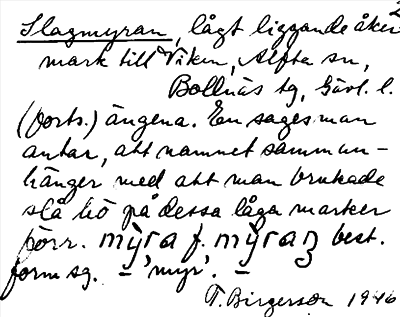 Slagmyran, lågt liggande åker 2
mark till Viken, Alfta sn,
Bollnäs tg, Gävl. l.
(forts.) ängena. En sagesman
antar, att namnet samman-
hänger med att man brukade
slå hö på dessa låga marker
förr. mỳra f. mỳraʒ best.
form sg. – 'myr'. –
T. Birgerson 1946